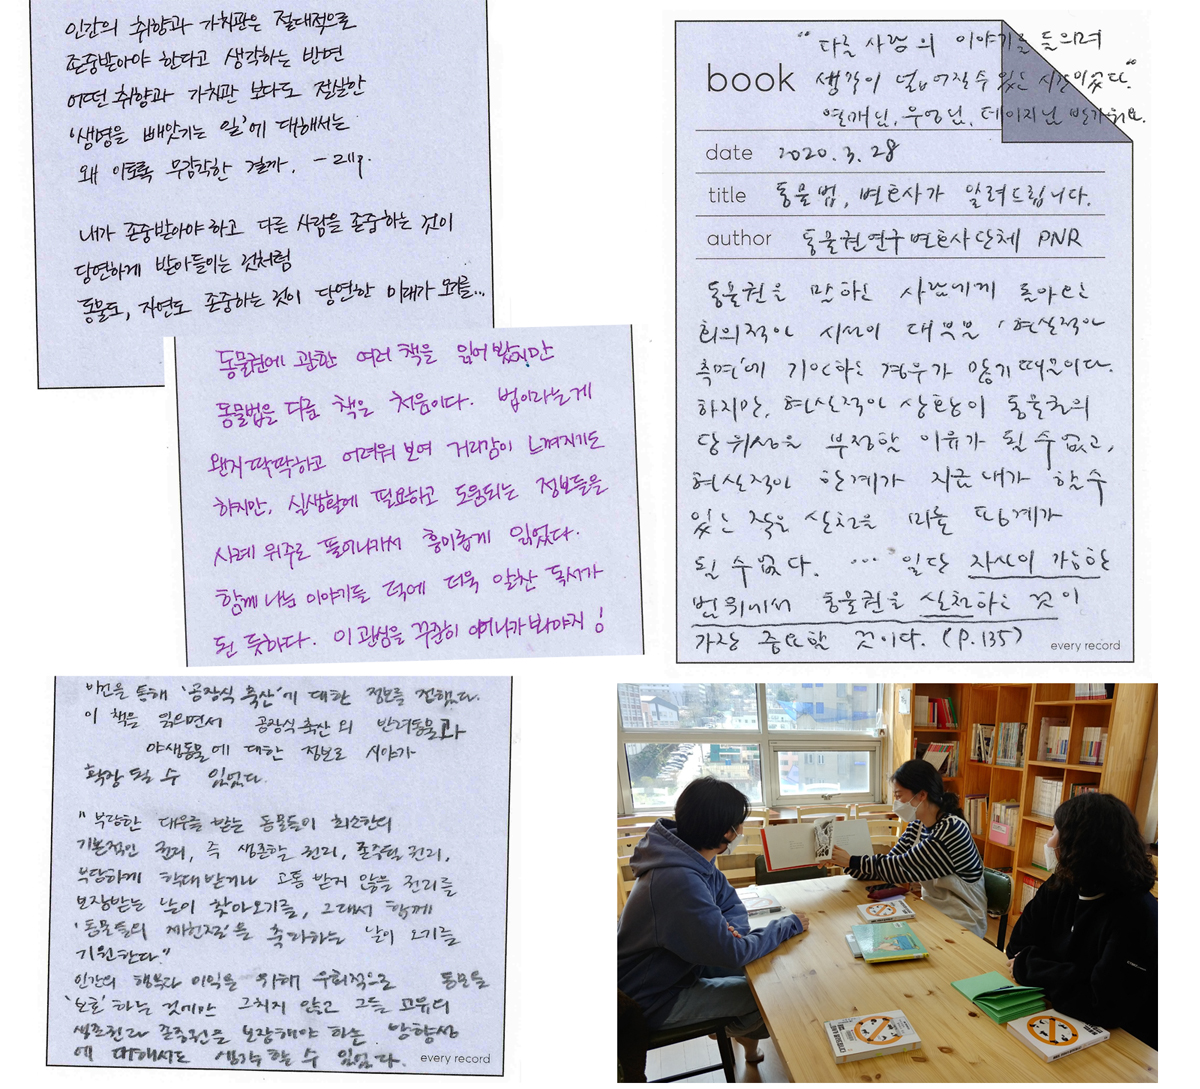 인간의 취향과 가치관은 절대적으로
존중받아야 한다고 생각하는 반면
어떤 취향과 가치관 보다도 절실한
'생명을 빼앗기는 일'에 대해서는
왜 이토록 무감각한 걸까.
내가 존중받아야 하고 다른 사람을 존중하는 것이
당연하게 받아들이는 것처럼
동물도, 자연도 존중하는 것이 당연한 미래가 오기를...
동물권에 관한 여러 책을 읽어 봤지만
동물법을 다룬 책은 처음이다. 법이라는게
왠지 딱딱하고 어려워 보여 거리감이 느껴지기도
하지만, 실생활에 필요하고 도움되는 정보들을
사례 위주로 풀어나가서 흥미롭게 읽었다.
함께 나눈 이야기들 덕에 더욱 알찬 독서가
된 듯하다. 이 관심을 꾸준히 이어나가 봐야지!
"다른 사람의 이야기를 들으며
book 생각이 넓어질 수 있는 시간이었다."
데이지님 반가워요.
date 2020.3.28
title 동물법, 변호사가 알려드립니다.
author 동물권연구변호사단체 PNR
동물권을 말하는 사람에게 돌아오는
회의적인 시선이 대부분 '현실적인
측면'에 기인하는 경우가 많기 때문이다.
하지만, 현실적인 상황이 동물권의
당위성을 부정할 이유가 될 수 없고,
현실적인 한계가 지금 내가 할 수
있는 작은 실천을 미룰 핑계가
될 수 없다. ... 일단 자신이 가능한
범위에서 동물권을 실천하는 것이
가장 중요할 것이다. (P.135)
every record
통해 '공장식 축산'에 대한 정보를 전했다.
이 책을 읽으면서 공장식 축산 외 반려동물과
야생동물에 대한 정보로 시야가
확장 될 수 있었다.
"부당한 대우를 받는 동물들이 최소한의
기본적인 권리, 즉 생존할 권리, 존중될 권리,
부당하게 학대받거나 고통 받지 않을 권리를
보장받는 날이 찾아오기를, 그래서 함께
'동물들의 제헌절'을 축하하는 날이 오기를
기원한다."
인간의 행복과 이익을 위해 우회적으로 동물을
'보호'하는 것에만 그치지 않고 그들 고유의
생존권과 존중권을 보장해야 하는 방향성
에 대해서도 생각 할 수 있었다.
every record